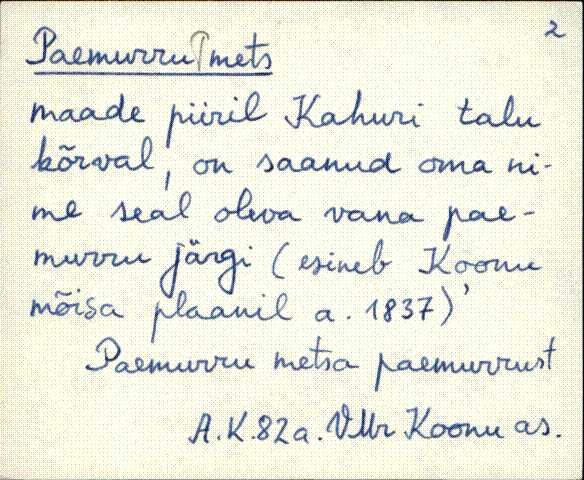 2
Paemurru mets
maade piiril Kahuri talu
kõrval, on saanud oma ni-
me seal oleva vana pae-
murru järgi (esineb Koonu
mõisa plaanil a. 1837)'
Paemurru metsa paemurrust
A.K.82a. VMr Koonu as.